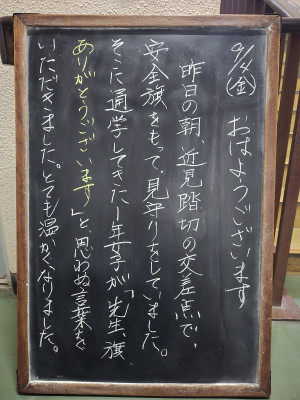 9/4㊎ おはようございます
昨日の朝、近見踏切の交差点で、
安全旗をもって、見守りをしていました。
そこに通学してきた1年女子が「先生、旗
ありがとうございます」と、思わぬ言葉を
いただきました。とても温かくなりました。